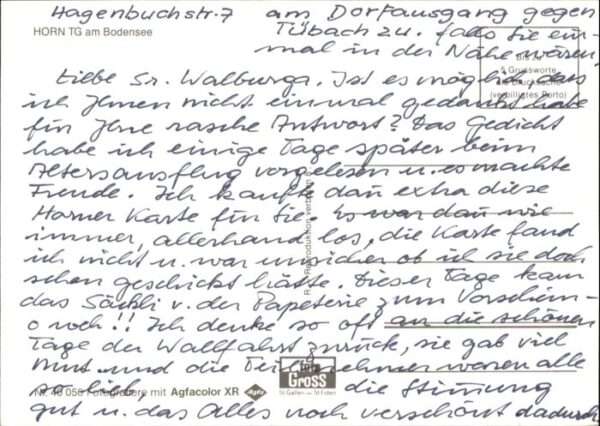 Hagenbuchstr. 7 am Dorfausgang gegen
HORN TG am Bodensee
Tübach zu. falls Sie ein-
mal in der Nähe wären.
5 Grussworte
(verbilligtes Porto)
Liebe Sr. Walburga. Ist es möglich, dass
ich Ihnen nicht einmal gedankt habe
für Ihre rasche Antwort? Das Gedicht
habe ich einige Tage später beim
Altersausflug vorgelesen u. es machte
Freude. Ich kaufte dan extra diese
Horner Karte für Sie. Es war dan wie
immer, allerhand los, die Karte fand
ich nicht u. war unsicher ob ich sie doch
schon geschickt hätte. Dieser Tage kam
das Säckli v. der Papeterie zum Vorschein-
o weh!! Ich denke so oft an die schönen
Tage der Wallfahrt zurück, sie gab viel
Mut. und die Teilnehmer waren alle
so lieb, die Stimung
foto
Gross
St. Gallen
Nr. 40 056 Fotografiere mit Agfacolor XR
gut u. das Alles noch verschönt dadurch